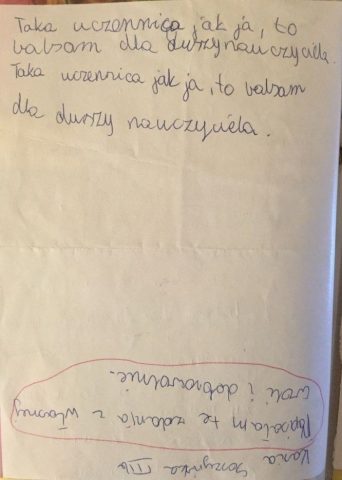 Taka uczennica jak ja, to
balsam dla duszy nauczyciela.
Taka uczennica jak ja, to balsam
dla duszy nauczyciela.
IIIb
te zdania z własnej
woli i dobrowolnie.